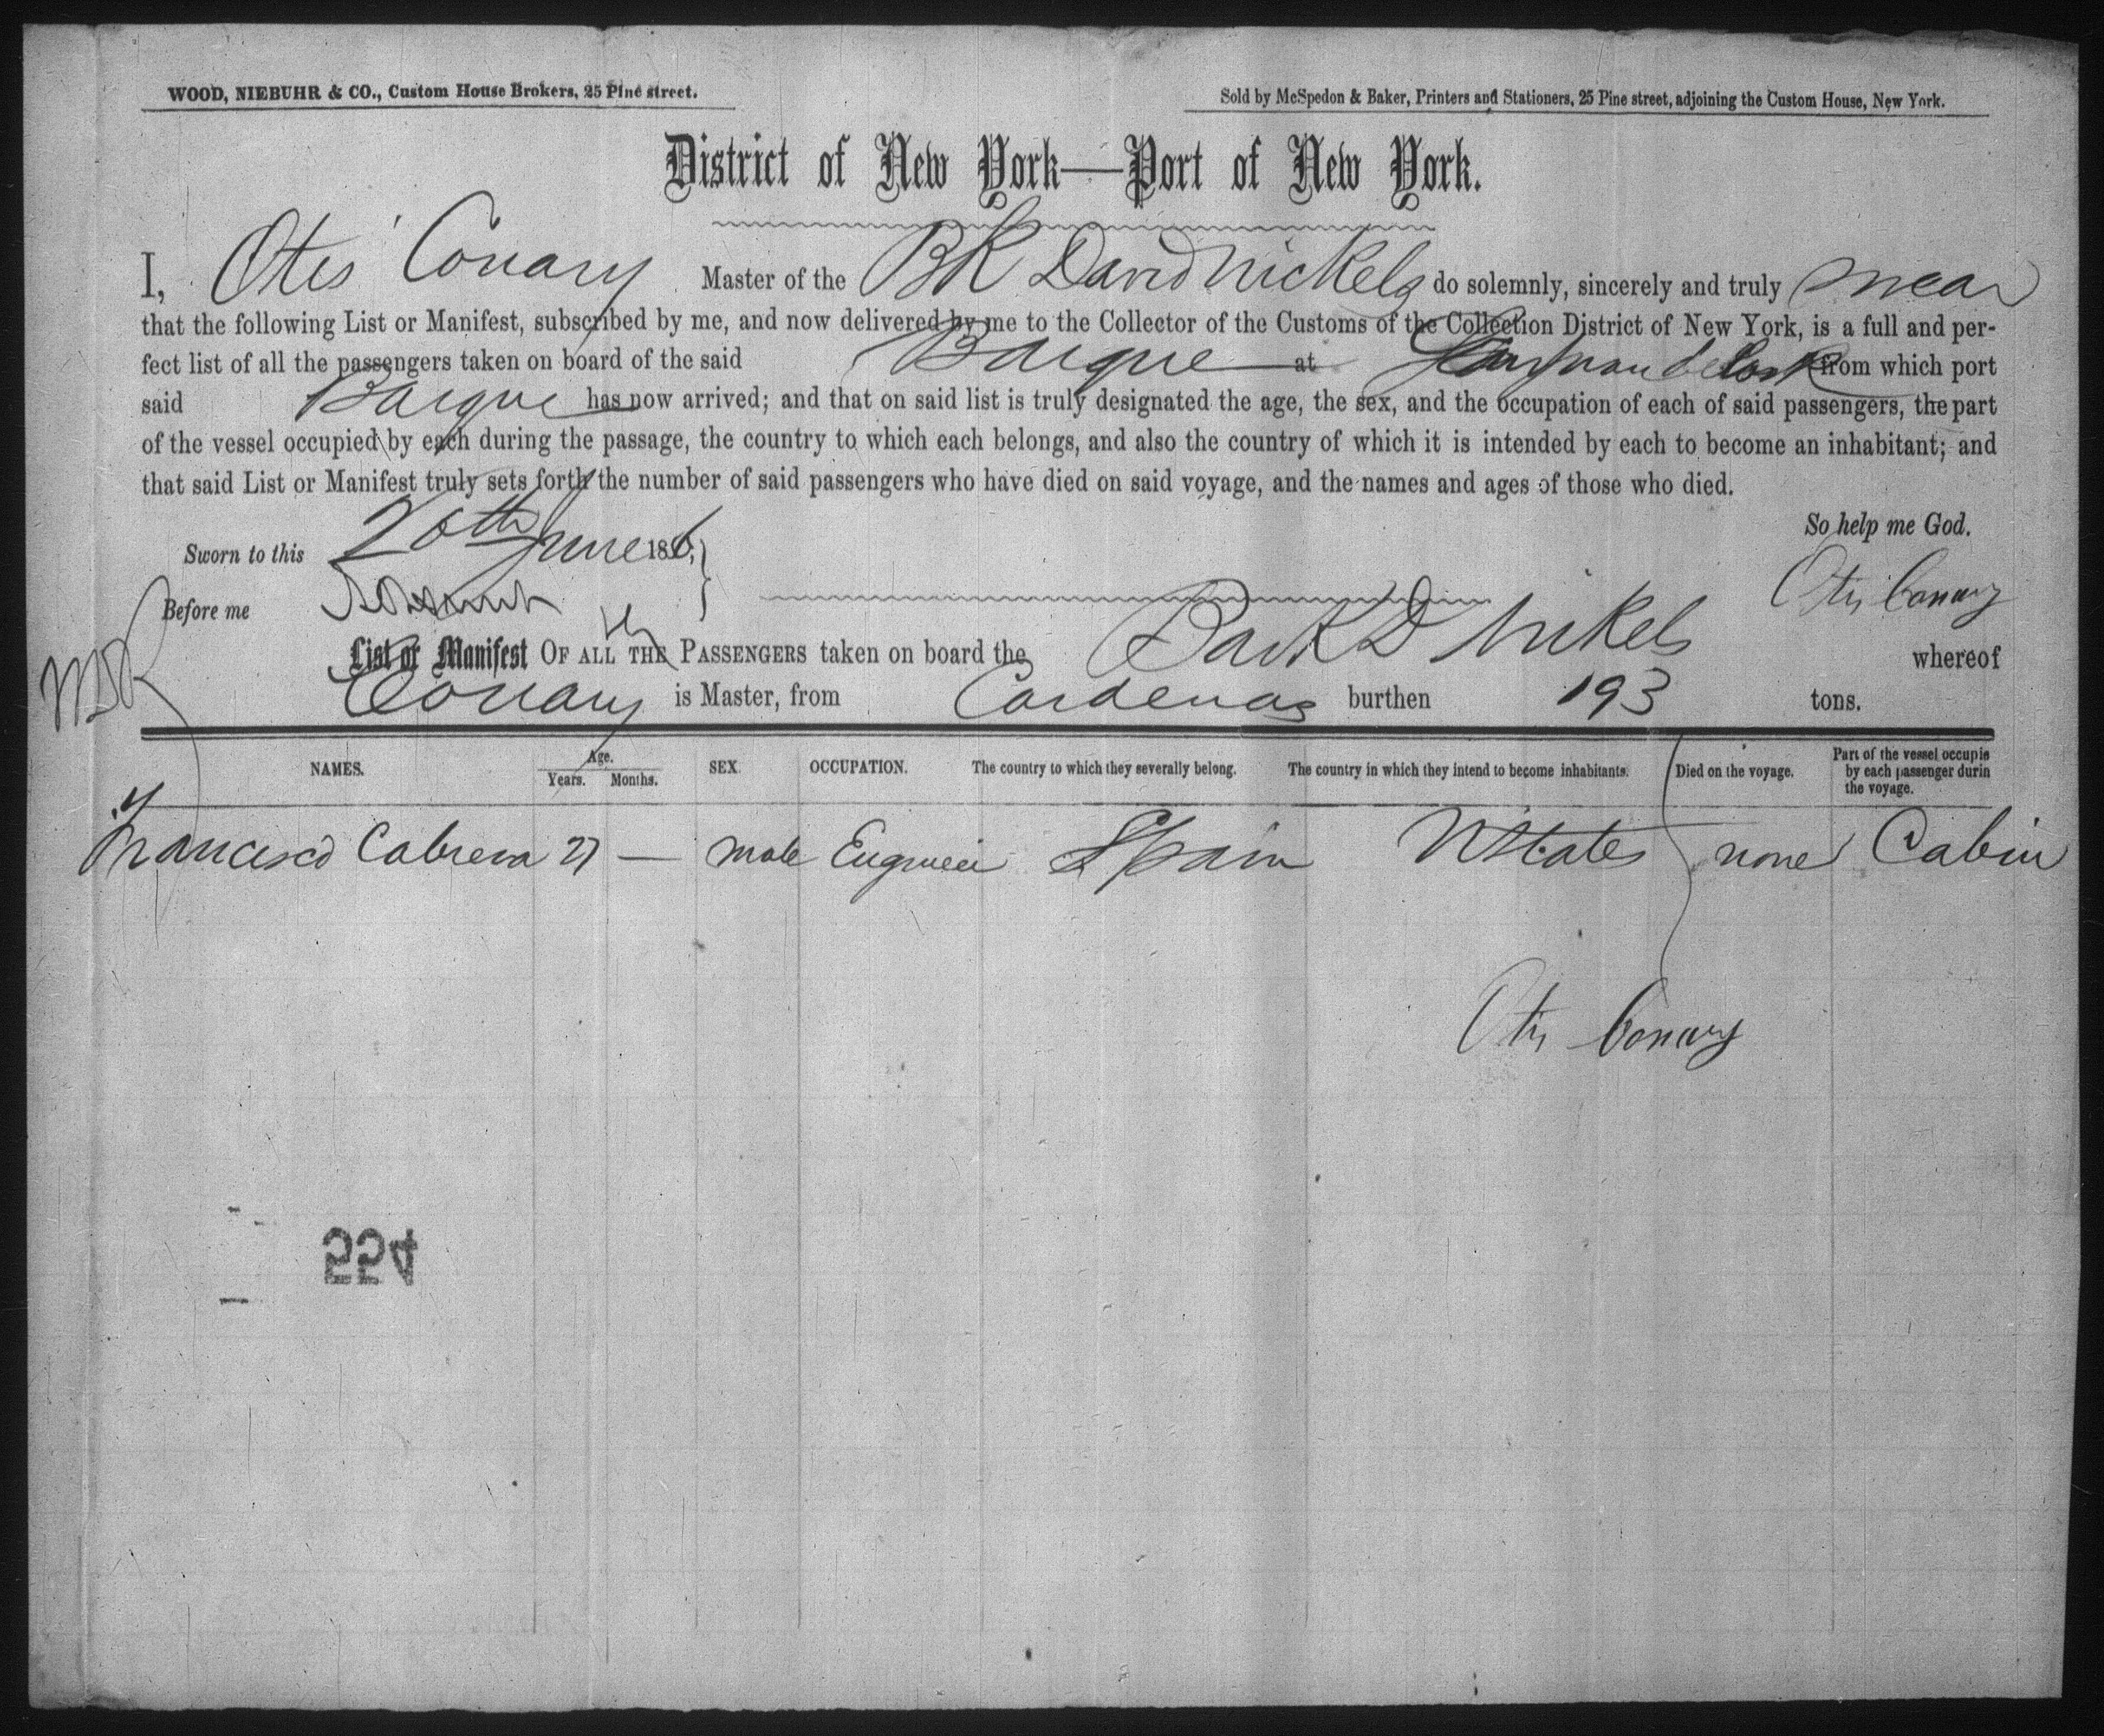 WOOD, NIEBUHR & CO., Custom House Brokers, 25 Pine street.
Sold by McSpedon & Baker, Printers and Stationers, 25 Pine street, adjoining the Custom House, New York.
District of New York—Port of New York.
I, Otis Conary Master of the BK David Nickels do solemnly, sincerely and truly swear
that the following List or Manifest, subscribed by me, and now delivered by me to the Collector of the Customs of the Collection District of New York, is a full and per-
fect list of all the passengers taken on board of the said Barque at from which port
said Barque has now arrived; and that on said list is truly designated the age, the sex, and the occupation of each of said passengers, the part
of the vessel occupied by each during the passage, the country to which each belongs, and also the country of which it is intended by each to become an inhabitant; and
that said List or Manifest truly sets forth the number of said passengers who have died on said voyage, and the names and ages of those who died.
So help me God.
Sworn to this 20th June 186
Otis Conary
Before me
List or Manifest OF ALL THE PASSENGERS taken on board the Bark D Nickels whereof
Conary is Master, from Cardenas burthen 193 tons.
NAMES. Age. Years. Months. SEX. OCCUPATION. The country to which they severally belong. The country in which they intend to become inhabitants. Died on the voyage. Part of the vessel occupie
by each passenger durin
the voyage.
Francisco Cabrera 27 — male Engineer Spain UStates none Cabin
Otis Conary
554